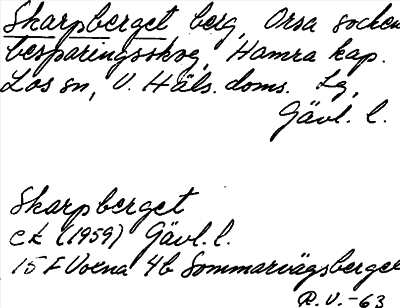 Skarpberget berg, Orsa socken
besparingsskog, Hamra kap.
Los sn, V. Häls. doms. Lg,
Gävl. l.
Skarpberget
ek (1959) Gävl. l.
15 F Voxna 4b Sommarvägsberget
R.V.-63